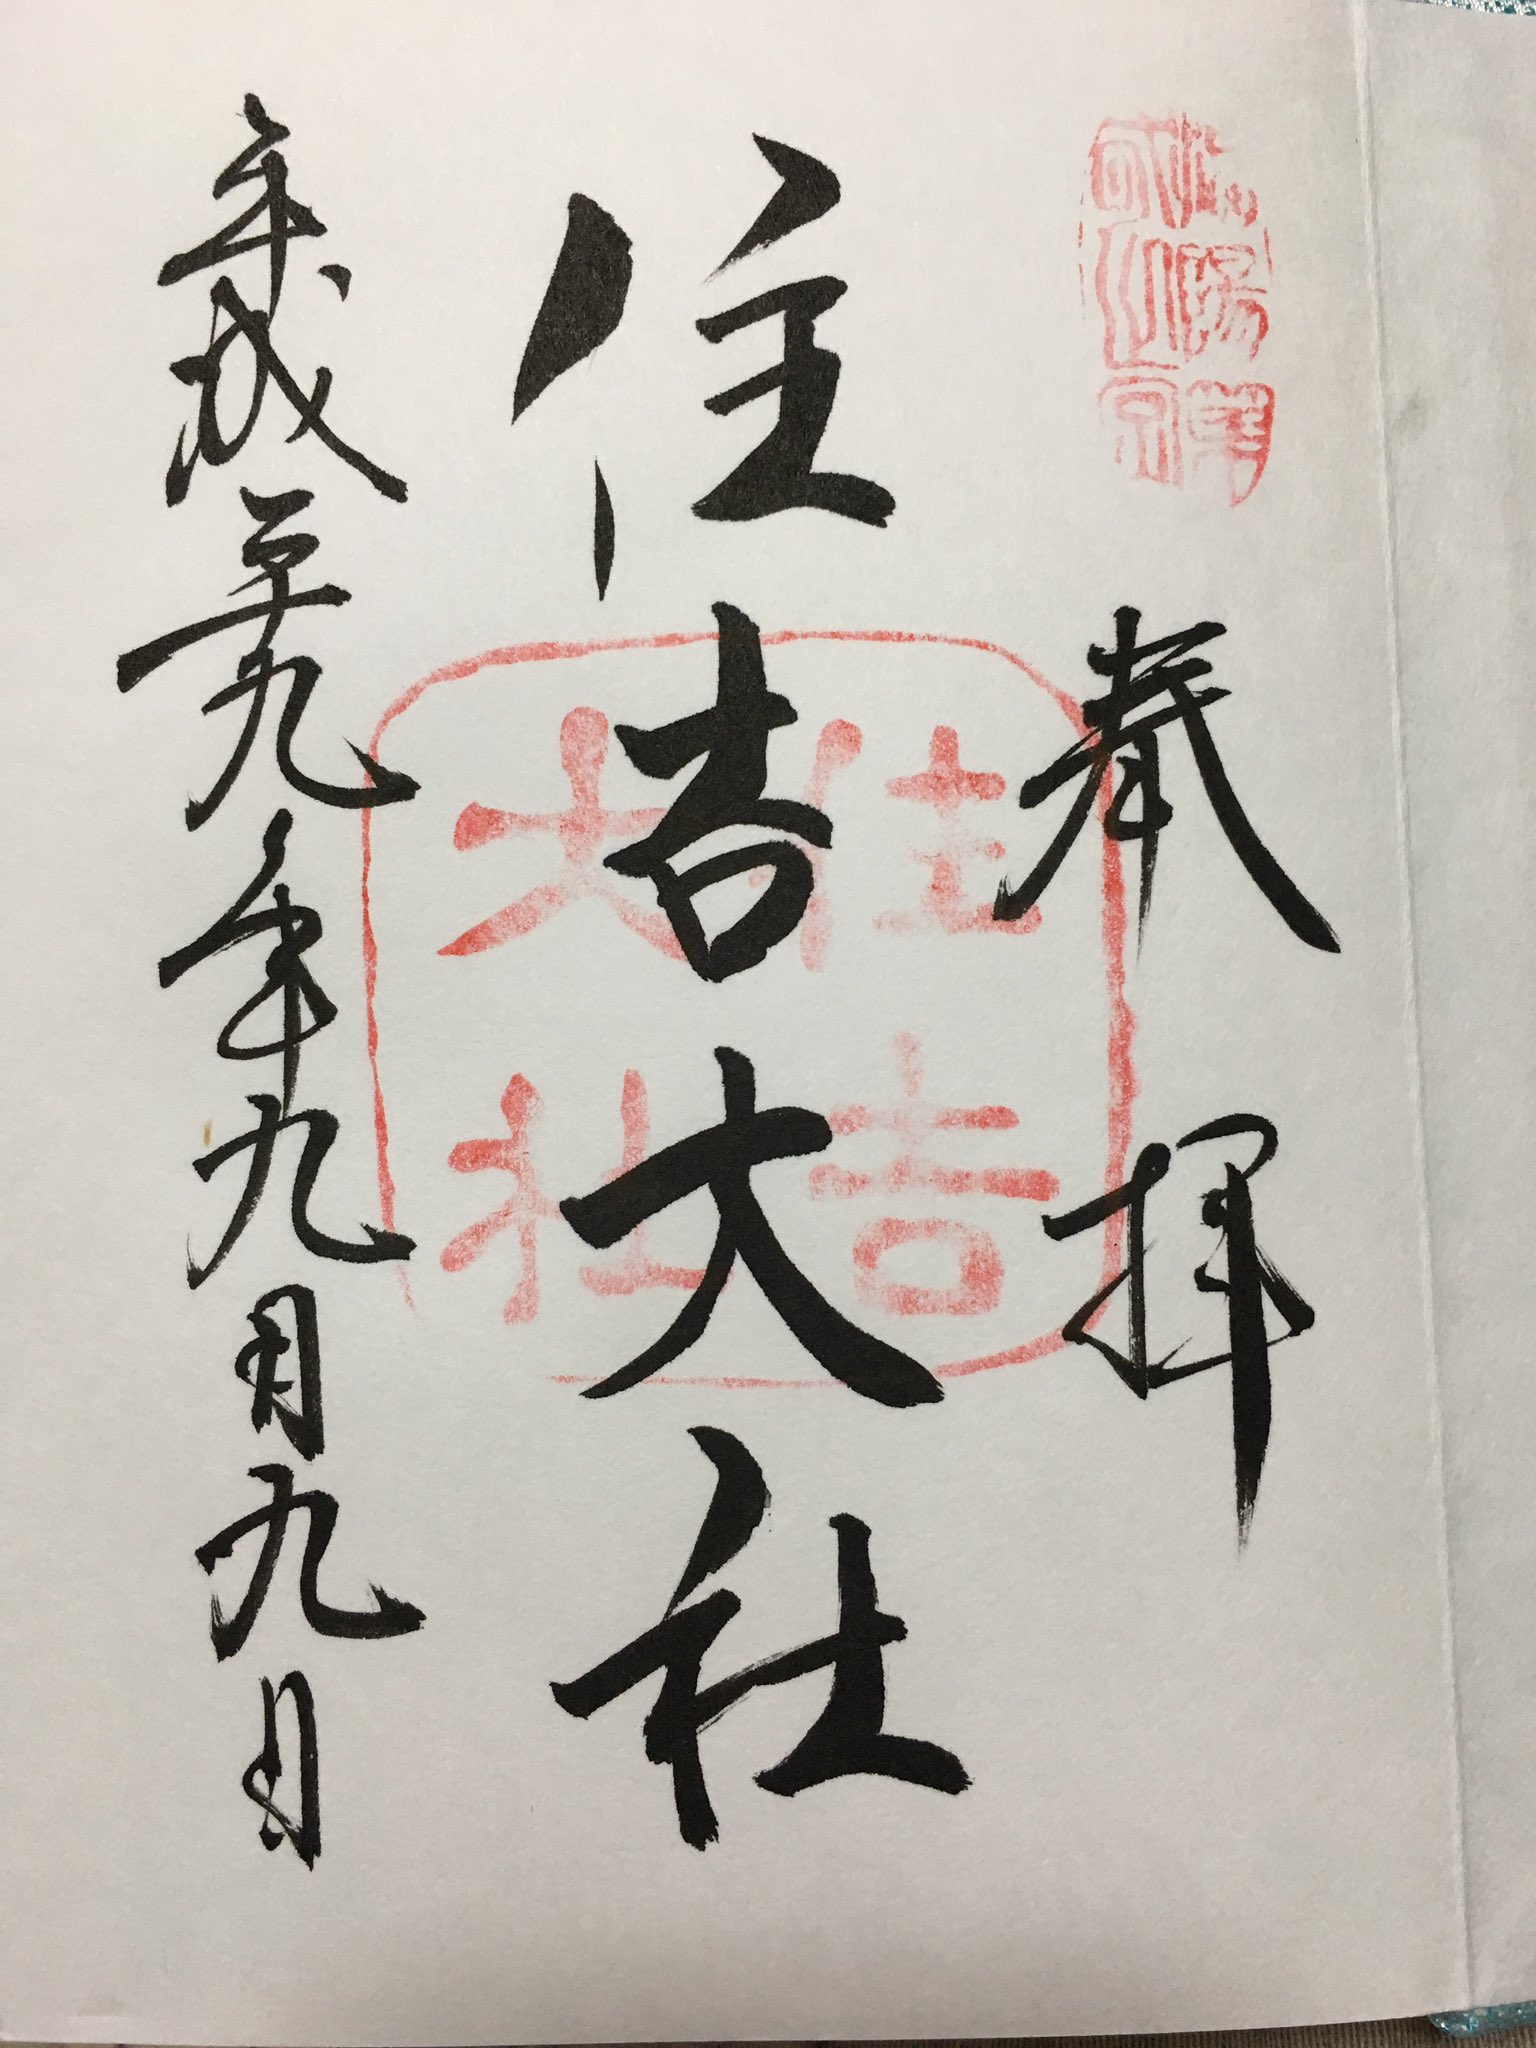 奉拝
住吉大社
平成二十九年九月九日
住吉
大社